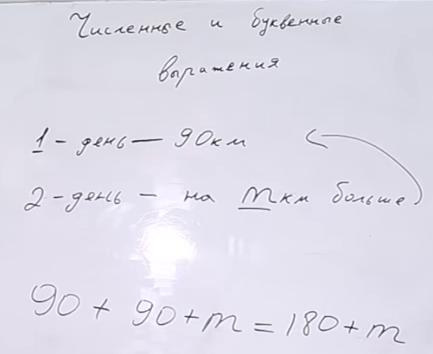 Численные и буквенные
выражения
1 - день — 90км
2 - день - на m км больше
90 + 90 + m = 180 + m